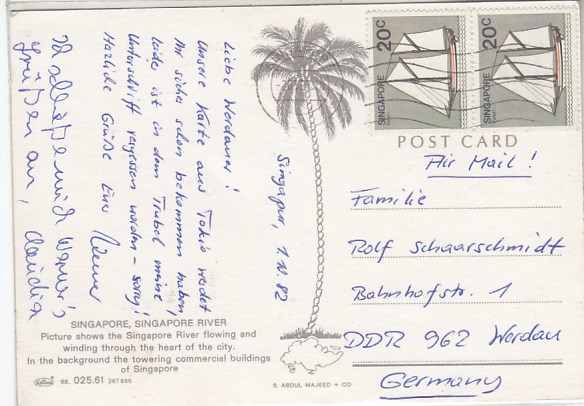 20c
SINGAPORE
20c
SINGAPORE
POST CARD
Air Mail!
Familie
Rolf Schaarschmidt
Bahnhofstr. 1
DDR 962 Werdau
Germany
Singapur, 1.IV.82
Liebe Werdauer!
Unsere Karte aus Tokio werdet
Ihr sicher schon bekommen haben,
leider ist in dem Trubel meine
Unterschrift vergessen worden - sorry!
Herzliche Grüße Euer
Ich schließe mich Werner's
Grüßen an, Claudia
SINGAPORE, SINGAPORE RIVER
Picture shows the Singapore River flowing and
winding through the heart of the city.
In the background the towering commercial buildings
of Singapore
025.61 267 696
S. ABDUL MAJEED + CO